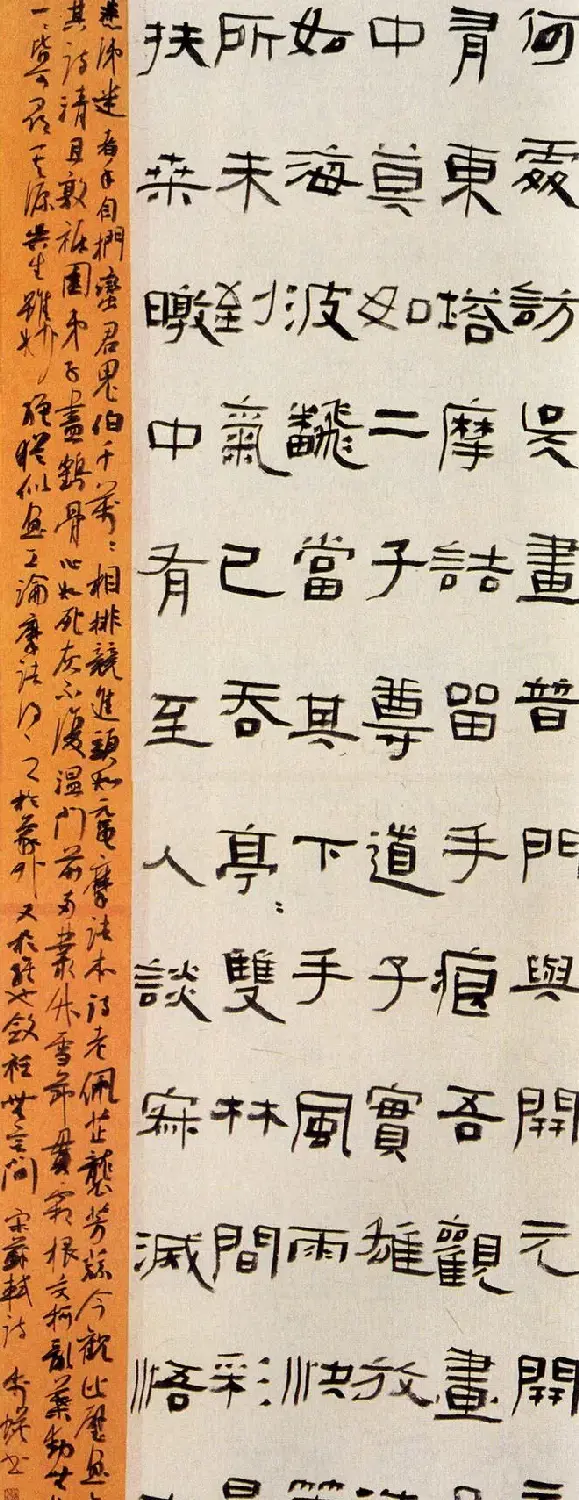 何處訪吳畫普門與開元開
有東塔摩詰留手痕吾觀畫
中莫如二子尊道子實雄放
如海波翻當其下手風雨快
所未到氣已吞亭々雙林間彩
扶桑暾中有至人談寂滅悟
悲涕迷者手自捫蠻君鬼伯千萬々相排競進頭如黿摩詰本詩老佩芷襲芳蓀今觀此壁畫
其詩清且敦祇園弟子盡鶴骨心如死灰不復溫門前兩叢竹雪節貫霜根交柯亂葉動無
一々皆可尋其源吳生雖妙絕猶似畫工論摩詰得之於象外又於維也斂衽無言間 宋蘇軾詩 書